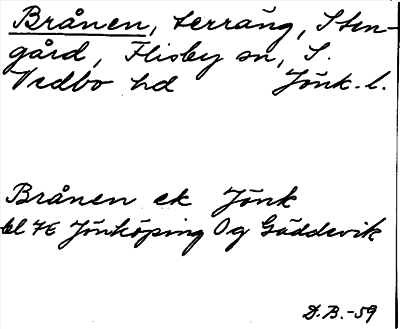 Brånen, terräng, Sten-
gård, Flisby sn, S.
Vedbo hd Jönk. l.
Brånen ek Jönk
bl 7E Jönköping Og Gäddevik
D.B.-59